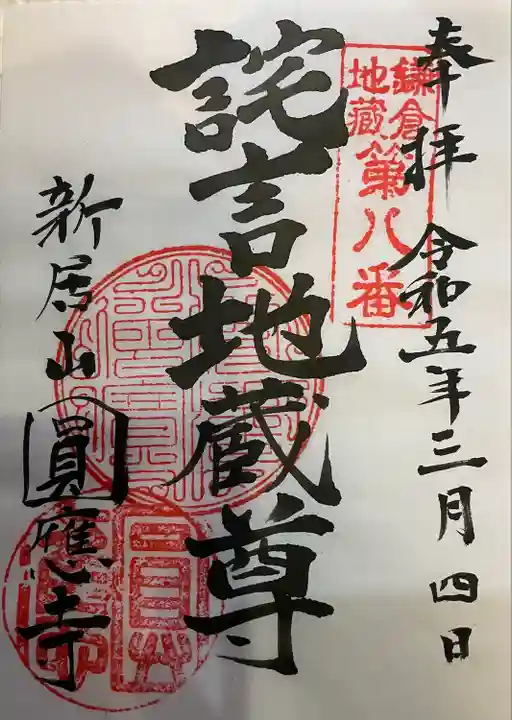 奉拝 令和五年三月四日
鎌倉
地蔵 第八番
詫言地蔵尊
新居山圓應寺